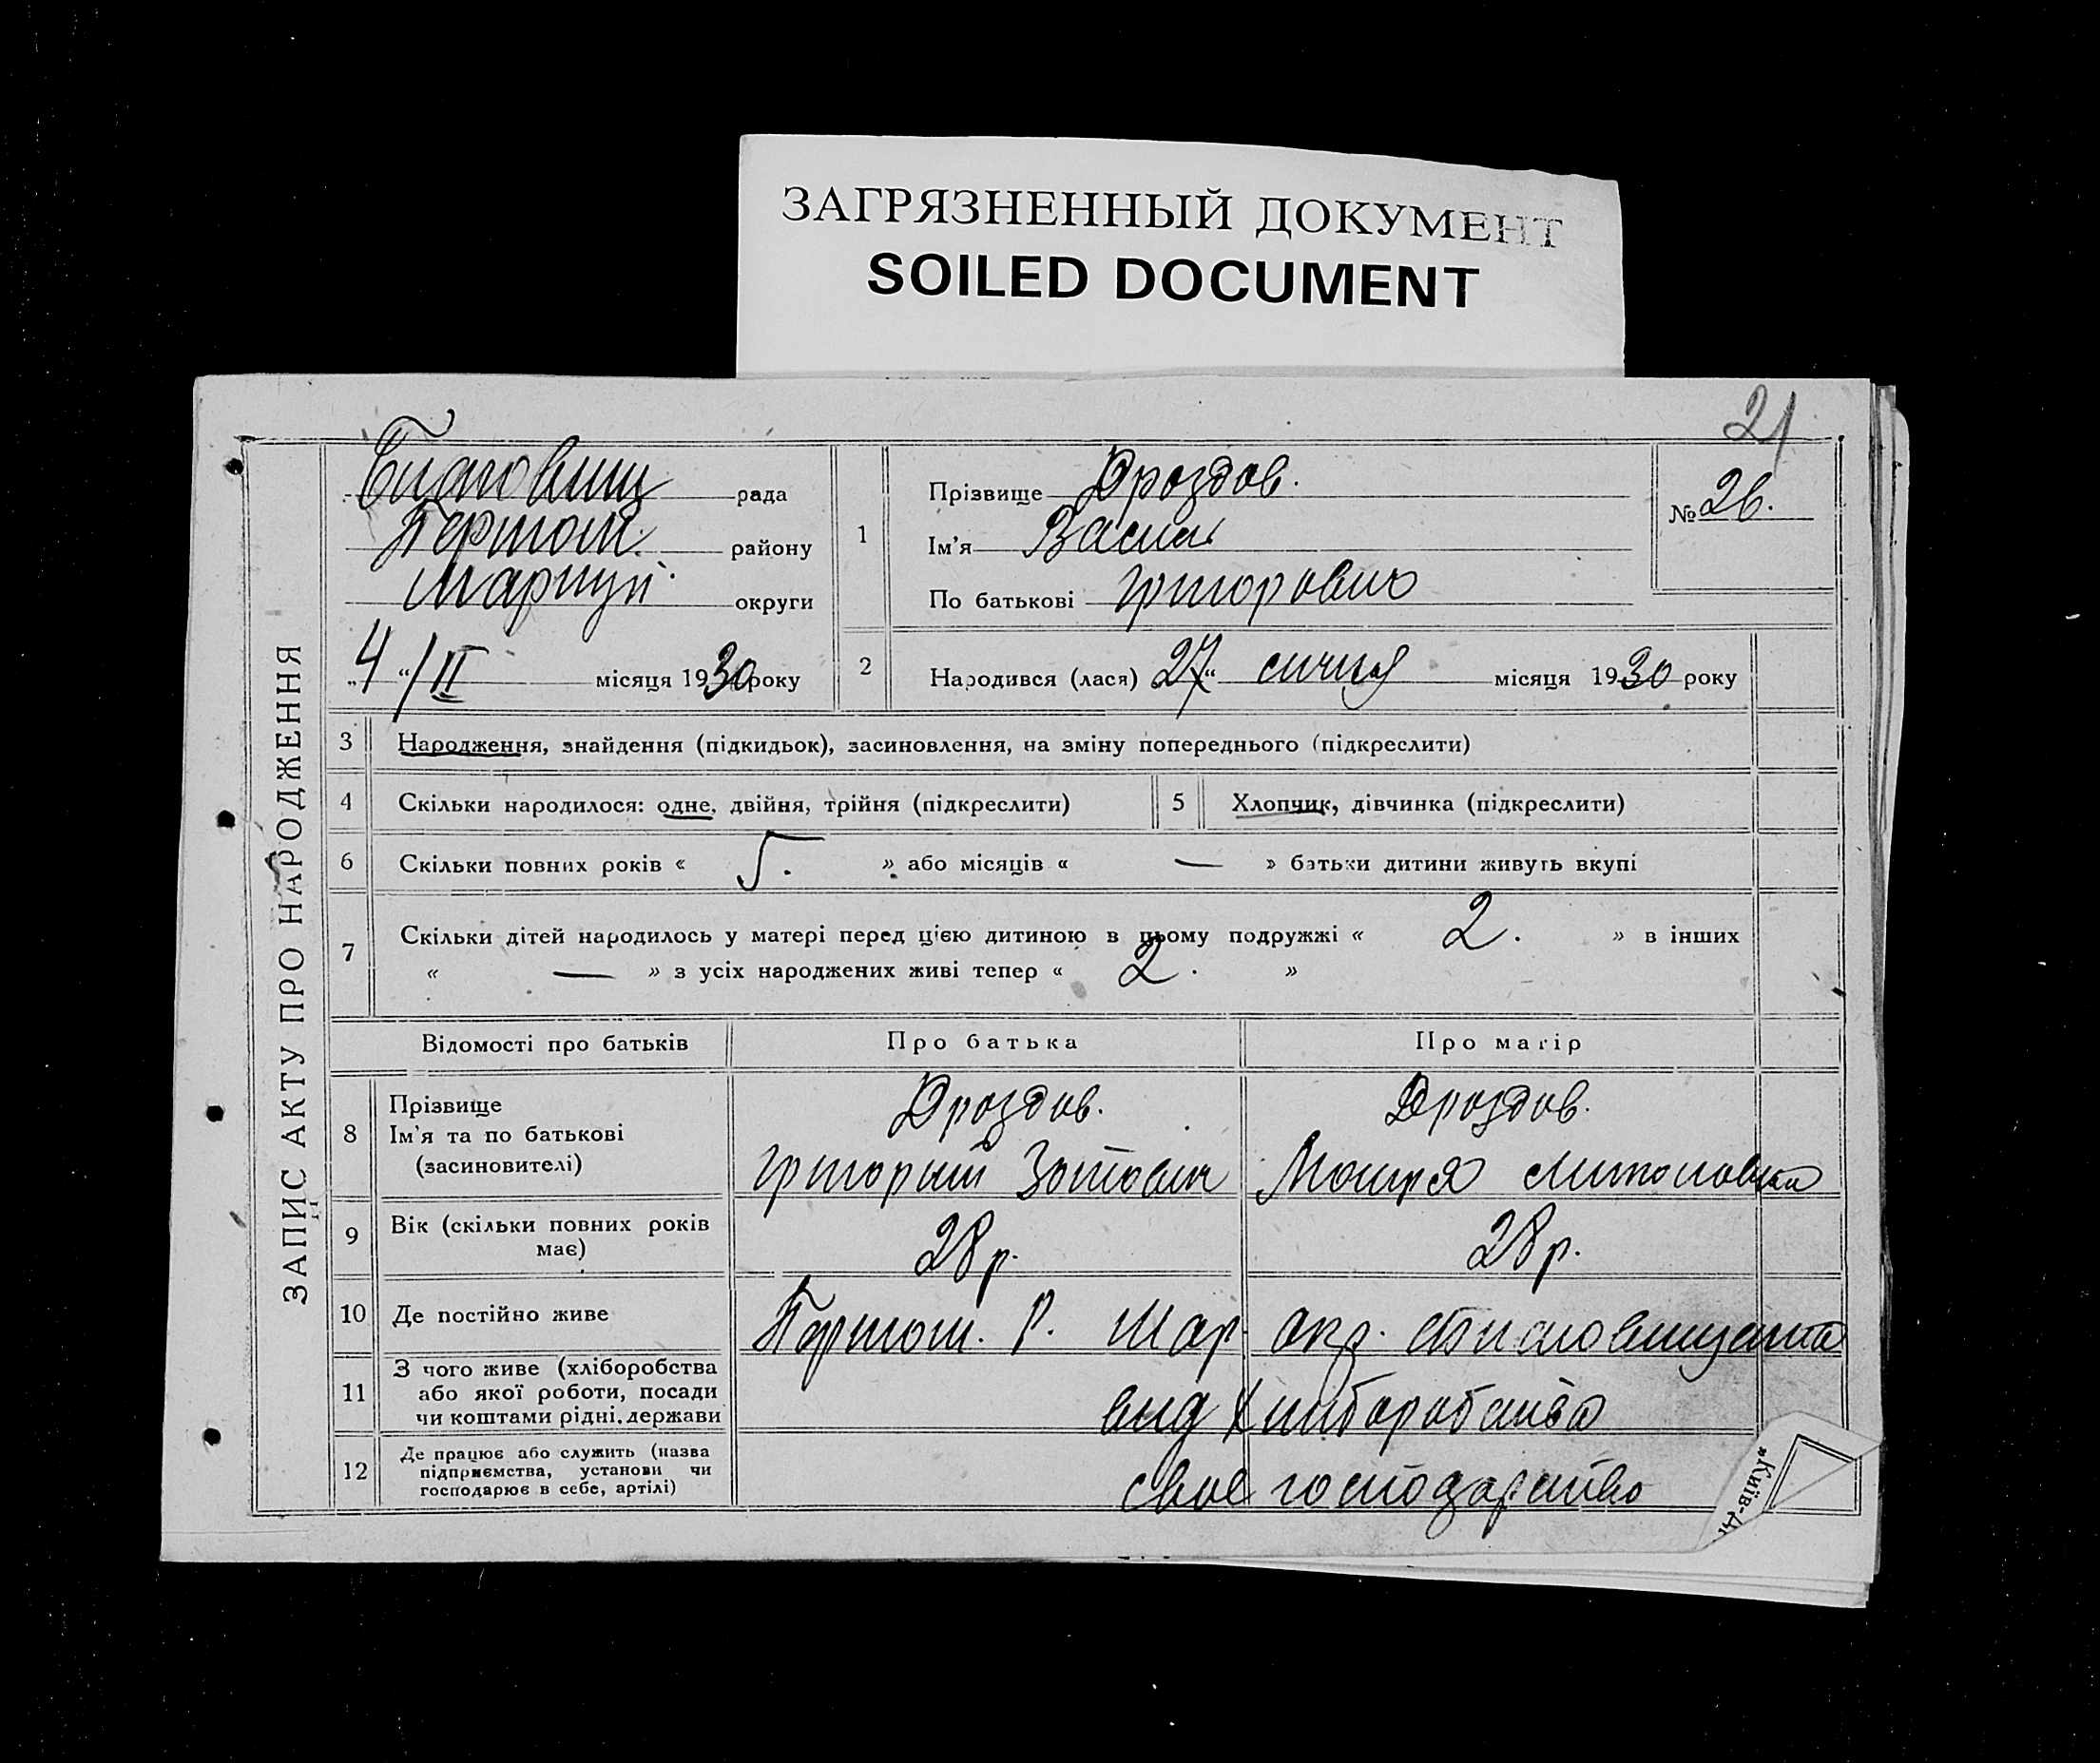 ЗАГРЯЗНЕННЫЙ ДОКУМЕНТ
SOILED DOCUMENT
21
ЗАПИС АКТУ ПРО НАРОДЖЕННЯ
рада
району
Маріуп. округи
„4“/II місяця 1930 року
1
Прізвище Дроздов.
Ім’я Василь
По батькові Григорович
№ 26.
2 Народився (лася) 27“ січня місяця 1930 року
3 Народження, знайдення (підкидьок), засиновлення, на зміну попереднього (підкреслити)
4 Скільки народилося: одне, двійня, трійня (підкреслити)
5 Хлопчик, дівчинка (підкреслити)
6 Скільки повних років « 5. » або місяців « — » батьки дитини живуть вкупі
7 Скільки дітей народилось у матері перед цією дитиною в цьому подружжі « 2. » в інших
« — » з усіх народжених живі тепер « 2. »
Відомості про батьків Про батька Про матір
8 Прізвище
Ім’я та по батькові
(засиновителі)
Дроздов.
Григорий Зотович
Дроздов.
Мотря
9 Вік (скільки повних років
має)
28 р.
28 р.
10 Де постійно живе
Р. Мар. окр.
11 З чого живе (хліборобства
або якої роботи, посади
чи коштами рідні, держави
від хліборобства
12 Де працює або служить (назва
підприємства, установи чи
господарює в себе, артілі)
своє господарство
„Київ-Д